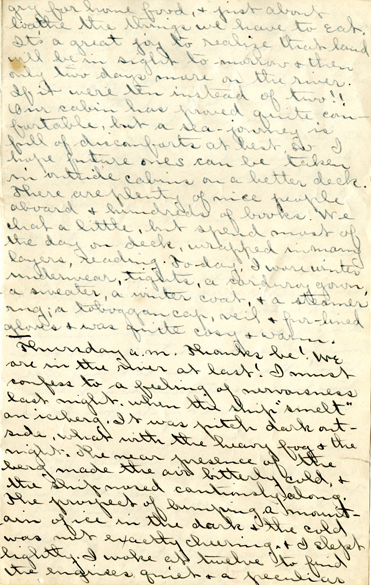 gry for home food, & just about
loathe the things we have to eat.
It's a great joy to realize that land
will be in sight to-morrow & then
only two days more on the river.
If it were ten instead of two!!
Our cabin has proved quite com-
fortable, but a sea-journey is
full of discomforts at best so I
hope future ones can be taken
in outside cabins on a better deck.
There are plenty of nice people
aboard & hundreds of books. We
chat a little, but spend most of
the day on deck, wrapped in many
layers, reading. To-day, I wore winter
underwear, tights, a corduroy gown,
a sweater, a winter coat, & a steamer
rug; a toboggan cap, veil & fur-lined
gloves & was quite cosy & warm.
Thursday a.m. Thanks be! We
are in the river at last! I must
confess to a feeling of nervousness
last night, when the ship "smelt"
an iceberg. It was pitch dark out-
side, what with the heavy fog & the
night. The near presence of the
berg made the air bitterly cold, &
the ship nosed cautiously along.
The prospect of bumping a mount-
ain of ice in the dark & the cold
was not exactly cheering, & I slept
lightly. I woke at twelve to find
the engines quiet & a peculiar